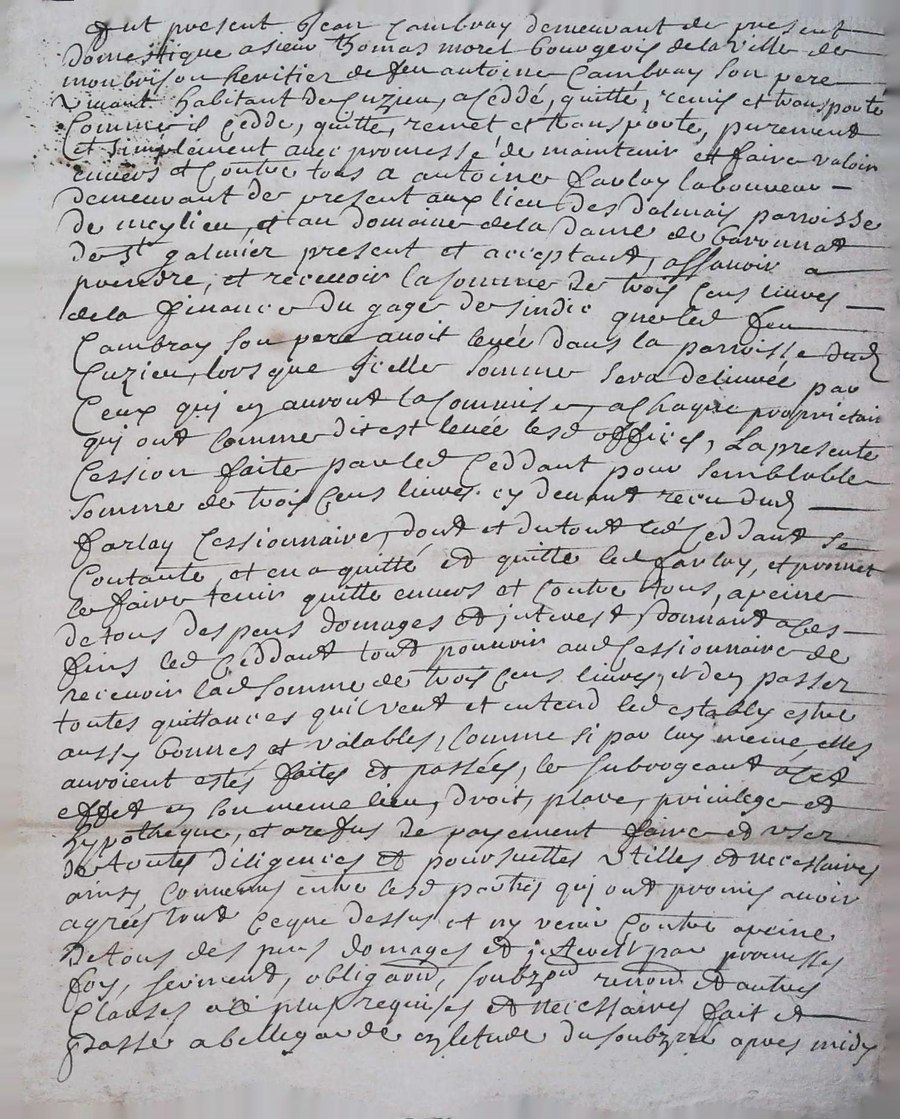 fut present Jean Cambray demeurant de present
domestique a sieur thomas morel bourgeois de la ville de
monbrison heritier de feu antoine Cambray son pere
vivant habitant de Cuzieu, a ceddé, quitté, remis et transporté
Comme il Cedde, quitte, remet et transporte, purement
et simplement avec promesse de maintenir et faire valoir
envers et Contre tous a antoine farlay laboureur
demeurant de present aux lieu des dalmais parroisse
de meylieu, et au domaine de la dame de baronnat
de St galmier present et acceptant, assavoir a
prendre, et recevoir la somme de trois Cens livres
de la finance du gage de sindic que led feu
Cambray son pere avoit levée dans la parroisse dud
Cuzieu, lorsque Jcelle somme sera delivrée par
Ceux quj en auront la Commise, a chaque proprietair
quj ont Comme dit est levée lesd offices, La presente
Cession faite par led Ceddant pour semblable
somme de trois Cens livres cy devant receu dud
farlay Cessionnaire, dont et du tout led Ceddant se
Contante, et en a quitté et quitte led farlay, et promet
le faire tenir quitte envers et Contre tous, a peine
de tous despens domages et jnterest donnant a Ces
fins led Ceddant tout pouvoir aud Cessionnaire de
recevoir lad somme de trois Cens livres, et d'en passer
toutes quittances quil veut et entend led estably estre
aussy bonnes et valables, Comme si par luy meme elles
auroient estés faites et passées, le subrogeant a Cet
effet en son meme lieu, droit, place, privilege et
hypotheque, et a refus de payement faire et user
de toutes diligences et poursuittes utilles et necessaires
ainsy Convenus entre lesd parties quj ont promis avoir
agrées tout Ceque dessus et ny venir Contre a peine
de tous despens domages et jnterest par promesses
foy, serment, obligaon, soubzon renon et autres
Clauses a Ce plus requises et necessaires fait et
passé a bellegarde en letude du soubzne apres midy